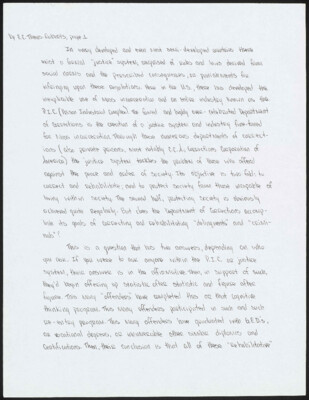 by R.C. Thomas
page 2
In every developed and even some semi-developed countries there
exist a judicial "justice" system, comprised of rules and laws derived from
moral codes and the prescribed consequences, or punishments for
infringing upon these regulations. Here in the U.S., there has developed the
unequivocal use of mass incarceration and an entire industry known as the
P.I.C (Prison Industrial Complex). The formal and legally sanctioned Department
of Corrections is the of a justice system and industry
for mass incarceration through these numerous departments of correct-
ions (also private prisons, most notably C.C.A, Corrections Corporation of
America) the justice system the of those who offend
against the peace and order of society. The objective is two fold: to
correct and rehabilitate, and to protect society from those incapable of
living within society. The second half, protecting society is obviously
achieved quite But does the Department of Corrections accomp-
lish its goals of correcting and rehabilitating "delinquents" and "crimi-
nals"?
This is a question that has two answers, depending on who
you ask. If you were to ask anyone within the P.I.C or justice
system, their answer is in the affirmative. Then, in support of such,
they'd begin offering up statistic after statistic and figure after
figure. This many "offenders" have completed this or that cognitive
thinking program. This many offenders participated in such and such
re-entry program. This many offenders have graduated with G.E.D's,
or vocational degrees, or innumerable other similar diplomas and
certifications. Then, their conclusion is that all of these "rehabilitative"